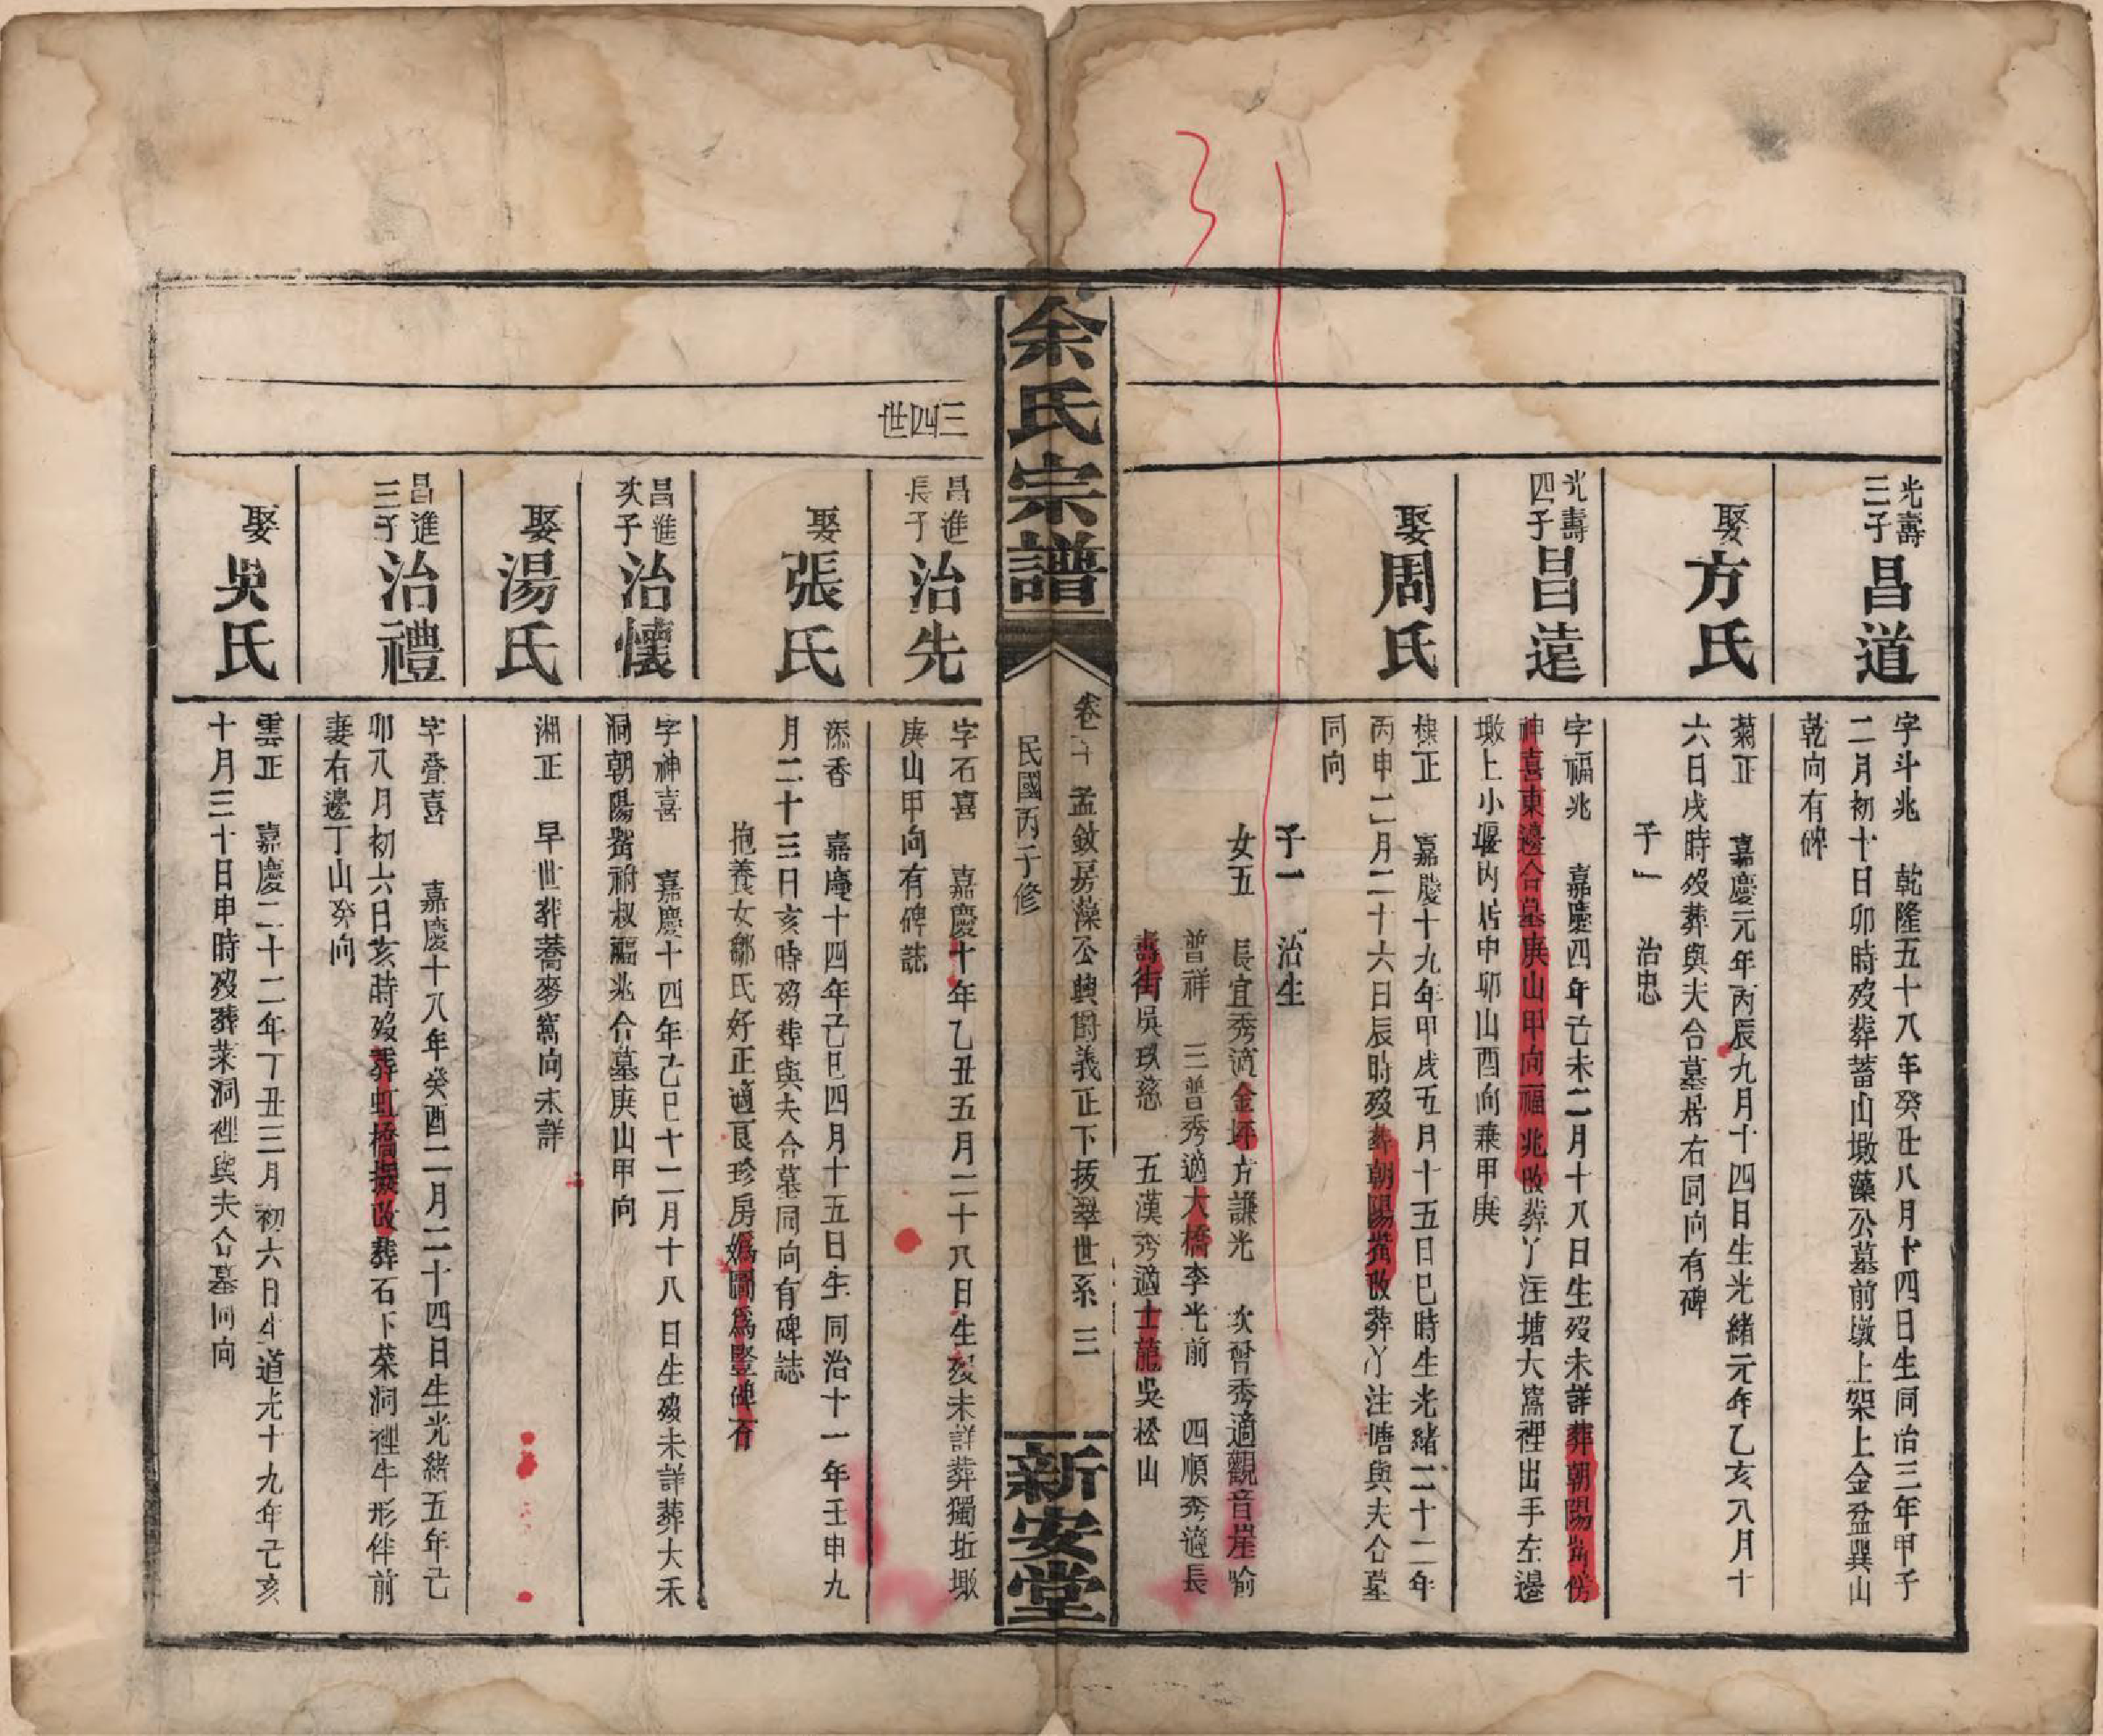 光壽
三子
昌道
字斗兆　乾隆五十八年癸丑八月十四日生同治三年甲子
二月初十日卯時歿葬蓄山墩藻公墓前墩上架上金盆巽山
乾向有碑
娶方氏
菊正　嘉慶元年丙辰九月十四日生光緒元年乙亥八月十
六日戌時歿葬與夫合墓居右同向有碑
子一　治忠
光壽
四子
昌遠
字福兆　嘉慶四年己未二月十八日生歿未詳葬朝陽嘴傍
神喜東邊合墓庚山甲向福兆改葬丫注塘大窩裡出手左邊
墩上小堰內居中卯山酉向兼甲庚
娶周氏
棣正　嘉慶十九年甲戌五月十五日巳時生光緒二十二年
丙申二月二十六日辰時歿葬朝陽嘴改葬丫注塘與夫合墓
同向
子一　治生
女五　長宜秀適金坪方謙光　次普秀適觀音崖喻
普祥　三普秀適大橋李光前　四順秀適長
壽街吳玖慈　五漢秀適士龍吳松山
余氏宗譜
卷二十　孟斂房藻公興爵義正下拔翠世系　三
民國丙子修
新安堂
三四世
昌進
長子
治先
字石喜　嘉慶十年乙丑五月二十八日生歿未詳葬獨坵墩
庚山甲向有碑誌
娶張氏
添香　嘉慶十四年己巳四月十五日生同治十一年壬申九
月二十三日亥時歿葬與夫合墓同向有碑誌
抱養女鄒氏好正適良珍房媯圖爲豎碑石
昌進
次子
治懷
字神喜　嘉慶十四年己巳十二月十八日生歿未詳葬大禾
洞朝陽嘴祔叔福兆合墓庚山甲向
娶湯氏
湘正　早世葬蕎麥窩向未詳
昌進
三子
治禮
字疊喜　嘉慶十八年癸酉二月二十四日生光緒五年己
卯八月初六日亥時歿葬虹橋搬改葬石下菜洞裡牛形伴前
妻右邊丁山癸向
娶吳氏
雲正　嘉慶二十二年丁丑三月初六日生道光十九年己亥
十月三十日申時歿葬菜洞裡與夫合墓同向